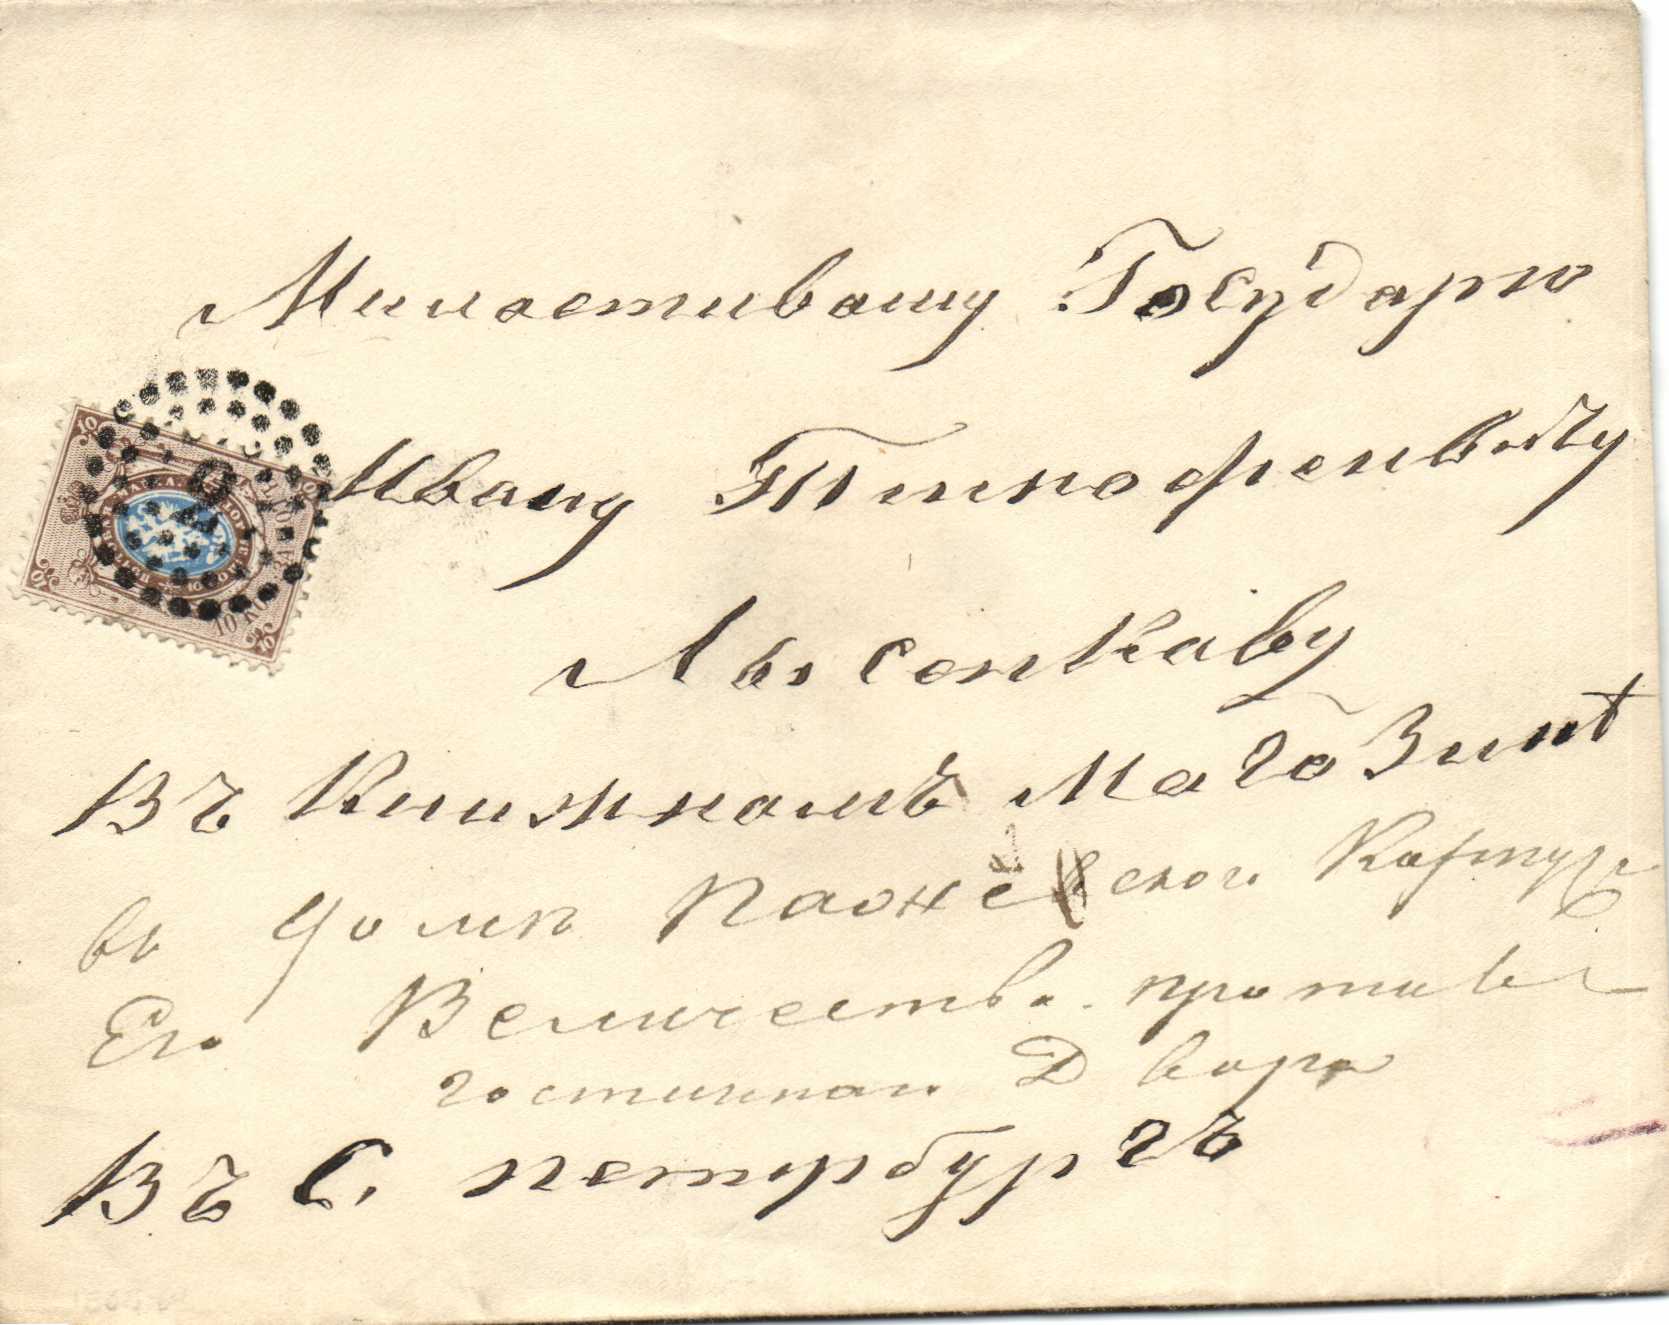 Милостивому Государю
Ивану Тимофеивичу
Лысенкаву
Въ Книжномъ Магозинѣ
въ доме Пажескои Карпуса
Его Величества противъ
гостиннаи Двора
Въ С. петербургъ
10
10
10
10
10 КОП